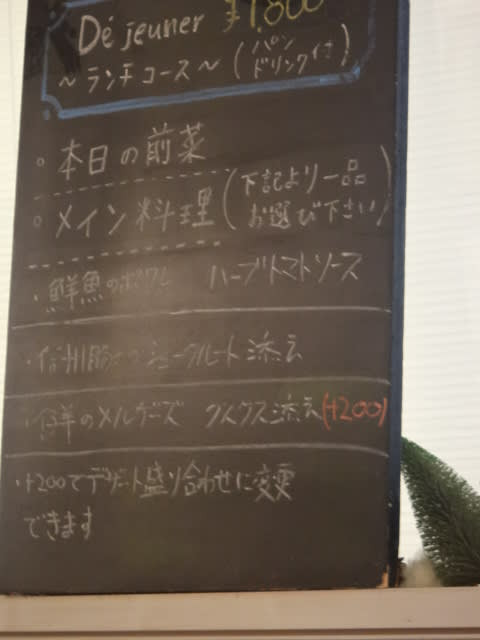 Déjeuner ¥1,800
～ランチコース～ (パン ドリンク付)
○本日の前菜
○メイン料理 (下記より一品 お選び下さい)
・鮮魚のポワレ ハーブトマトソース
・信州豚のシュークルート添え
・仔羊のメルゲーズ クスクス添え (+200)
・+200でデザート盛り合わせに変更
できます